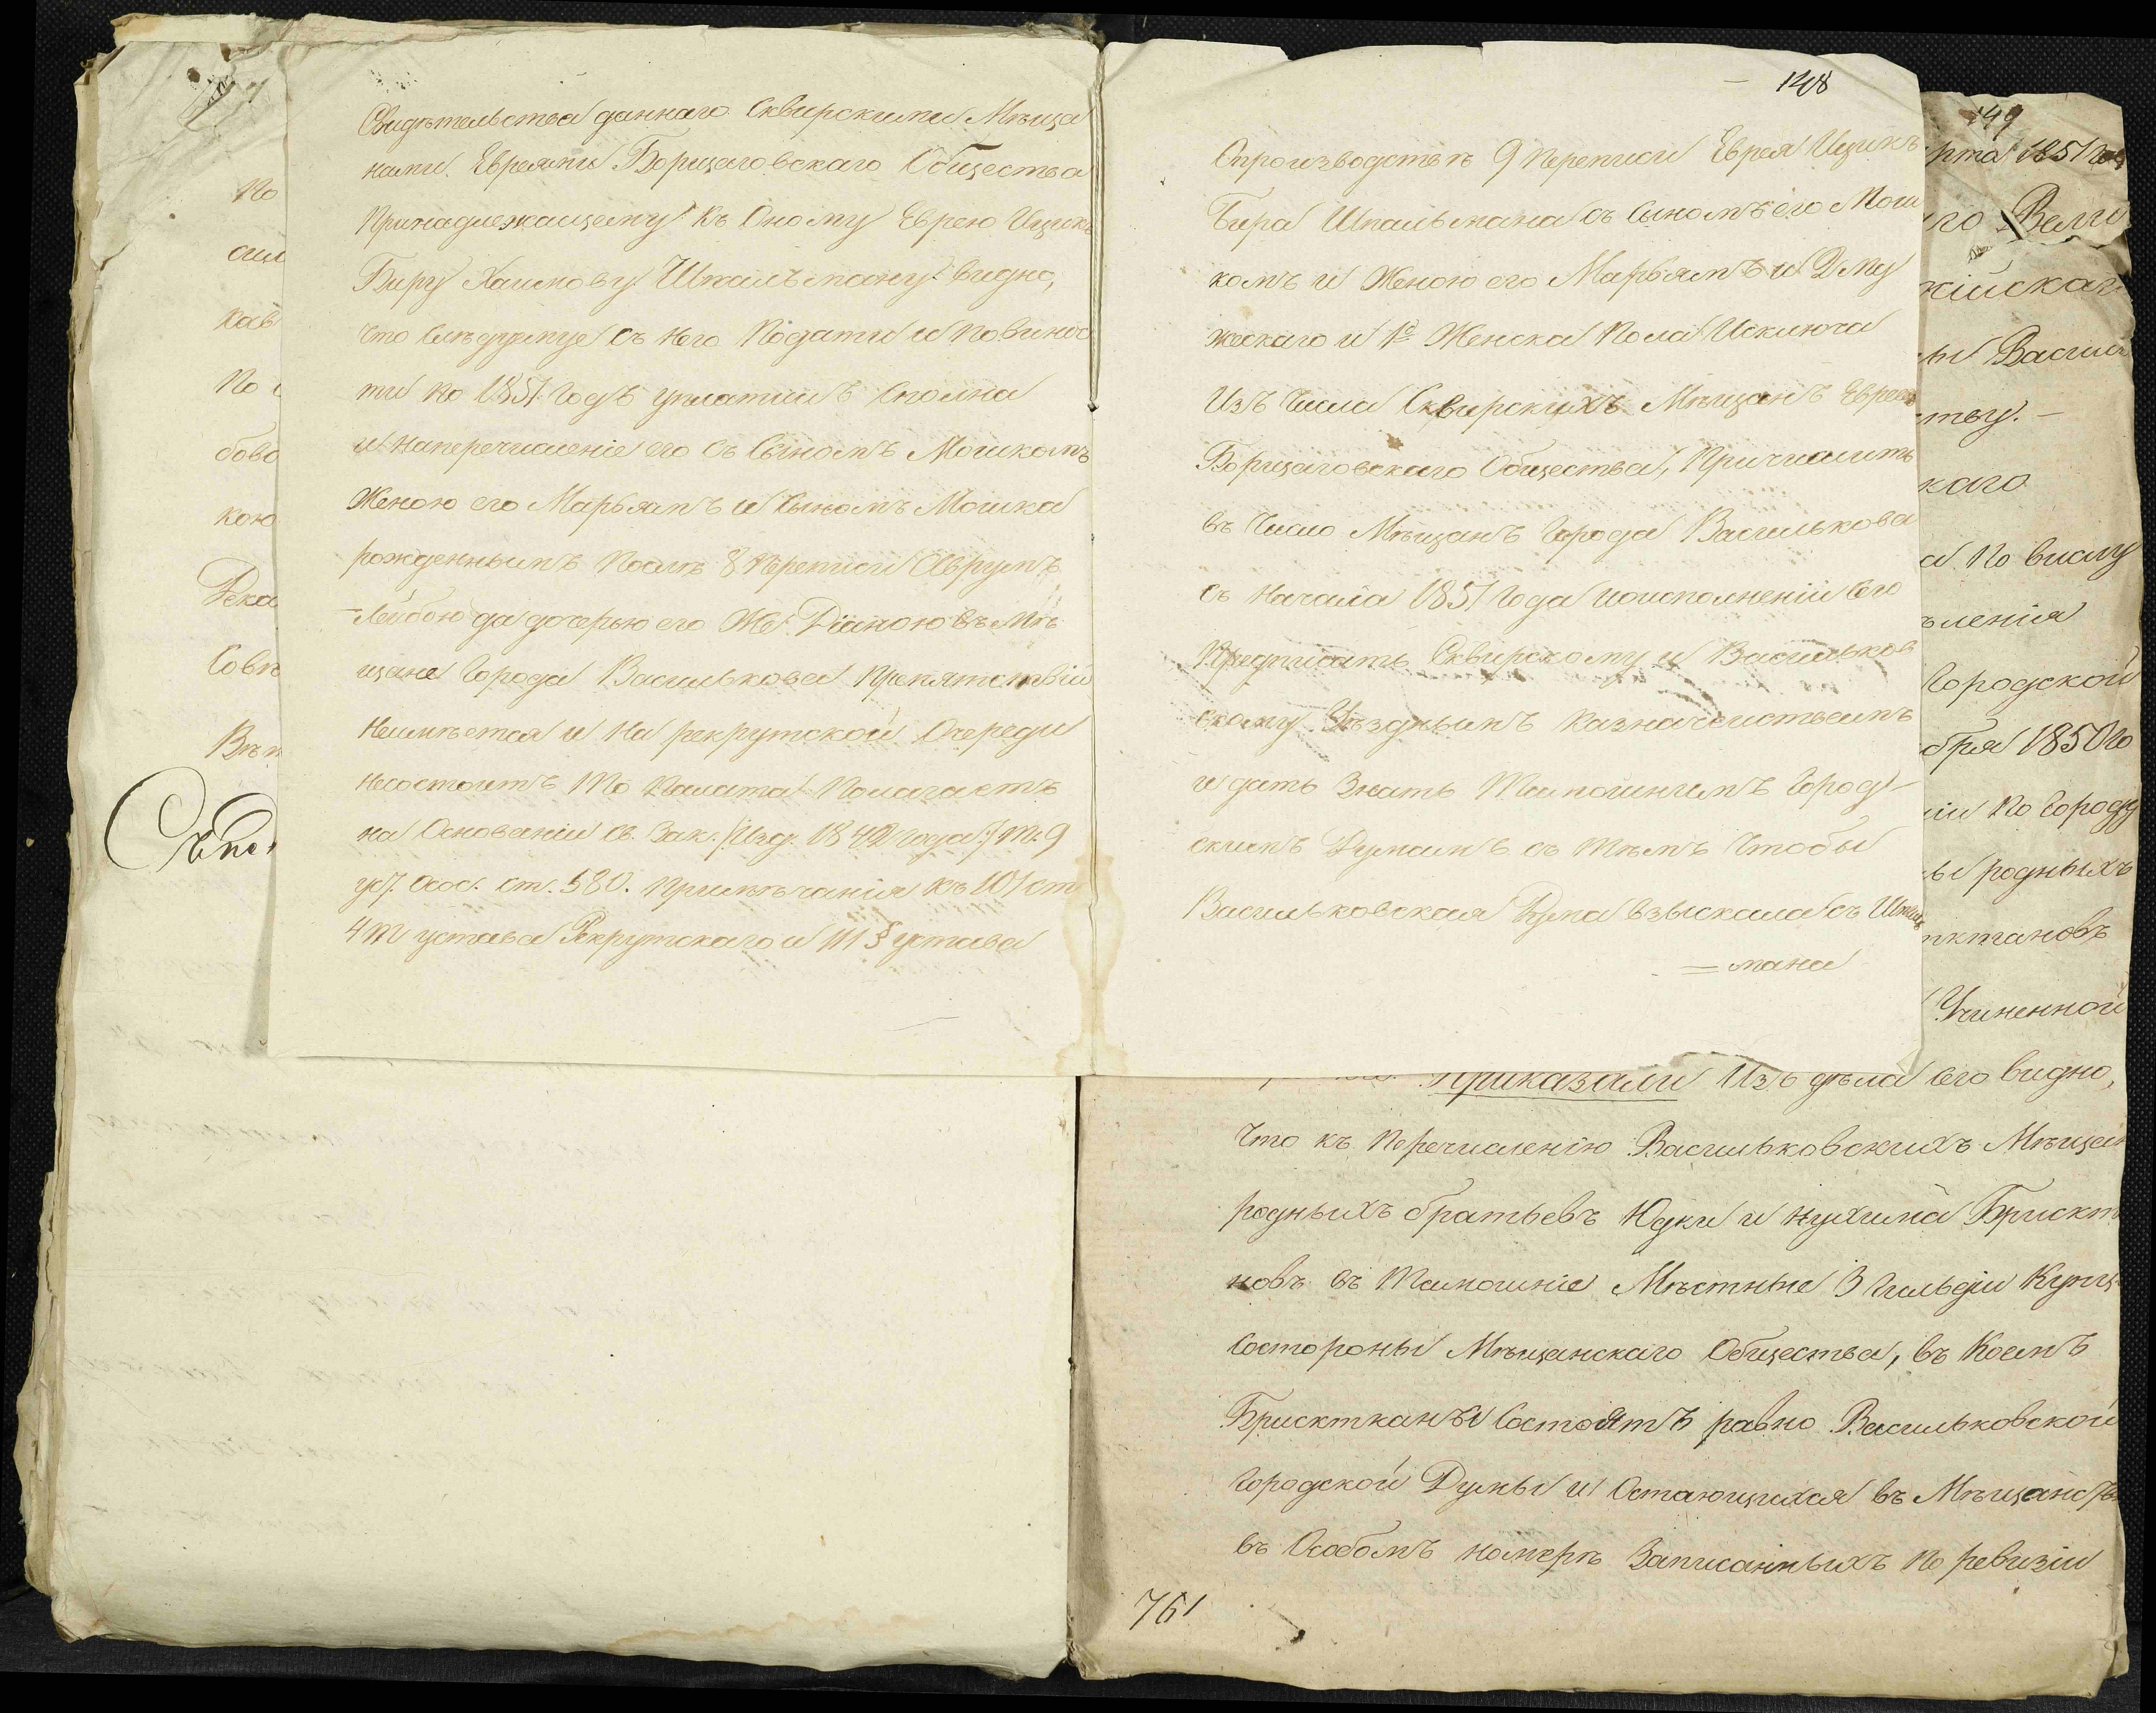 Свидѣтельства даннаго Сквирскими Мѣща
нами Евреями Борщаговскаго Общества
Принадлежащему Къ Оному Еврею Ицик
Беру Хаимову Шпальману видно,
что слѣдуемуе съ Него Подати и повинос
ти по 1851 Годъ уплатилъ Сполна
и наперечисленіе его съ Сыномъ Мошкомъ
Женою его Марьямъ и Сыномъ Мошка
рожденнымъ Послѣ 8 Переписи Аврумъ
-Лейбою да дочерью его же Діаною въ Мѣ
щане Города Василькова Препятствій
Неимѣется и На рекрутской Очереди
несостоитъ То Палата Полагаетъ
на Основаніи Св. Зак. /: Изд. 1842 года :/ т. 9
уст. Осос. ст. 580. Примѣчанія къ 101 ст
4 т устава Рекрутскаго и 111 § устава
148
Опроизводствѣ 9 Переписи Еврея Ицикъ
Бера Шпальмана съ Сыномъ его Мош
комъ и Женою его Марьямъ и 2 Му
жескаго и 1й Женска Пола Исключа
Изъ Числа Сквирскихъ Мѣщанъ Евреевъ
Борщаговскаго Общества, Причислить
въ Число Мѣщанъ Города Василькова
съ Начала 1851 Года и о исполненіи Сего
Предписать Сквирскому и Васильков
скому Уѣзднымъ Казначействамъ
и дать Знать Тамошнимъ Город-
скимъ Думамъ съ тѣмъ Чтобы
Васильковская Дума взыскала съ Шпаль
= мана
По
сил
Кав
По
бово
кою
Дека
Совѣ
Вѣт
149
рта 1851 Года
го Вели
скійскаго
ы Васил
ству. -
скаго
а По вислу
ѣленія
Городской
бря 1850 го
ніи По Городу
ы родныхъ
ктановъ
Учиненной
Приказали Изъ дѣла сего видно,
Что къ Перечисленію Васильковскихъ Мѣщан
родныхъ братьевъ Юдки и Нухима Брискт
новъ въ Тамошніе Мѣстные 3 Гильдіи Купц
Состороны Мѣщанскаго Общества, въ Коемъ
Брисктканы Состоятъ равно Васильковской
Городской Думы и Остающихся въ Мѣщанствѣ
въ Особомъ номерѣ Записанныхъ По ревизіи
761